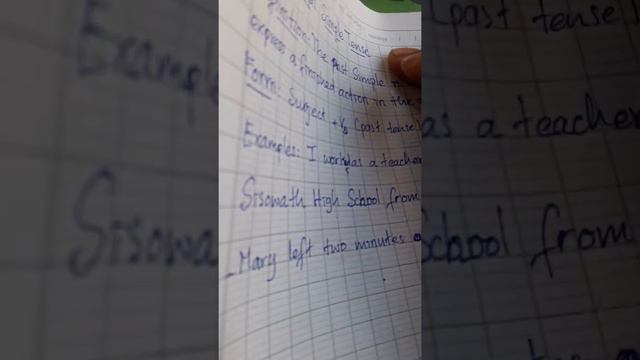 Simple Tense
The Past Simple is
express a finished action in the
Form: Subject + V (past tense)
Examples: I work as a teacher
Sisowath High School from
- Mary left two minutes